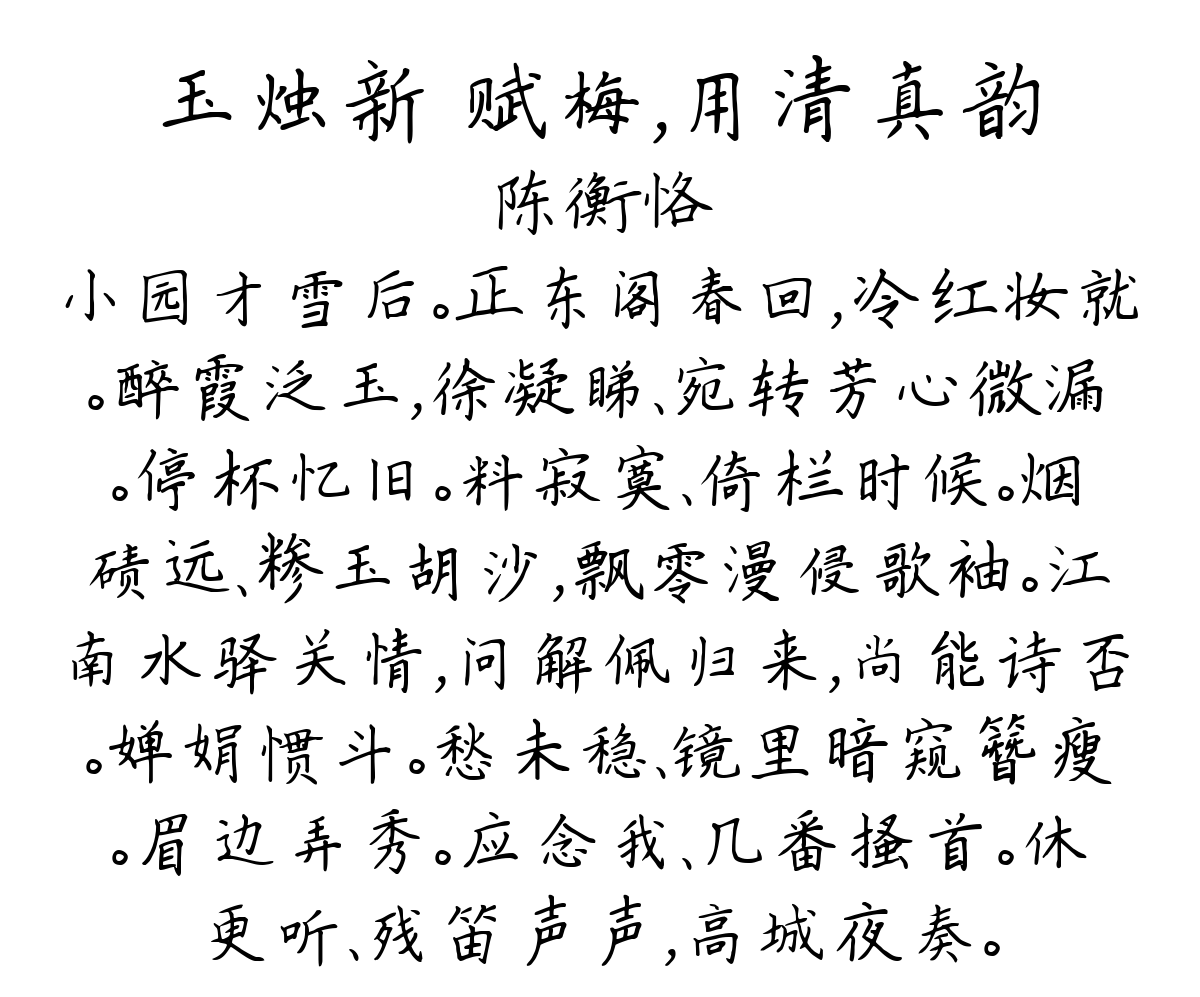 玉烛新 赋梅,用清真韵
陈衡恪
小园才雪后。正东阁春回,冷红妆就
。醉霞泛玉,徐凝睇、宛转芳心微漏
。停杯忆旧。料寂寞、倚栏时候。烟
碛远、糁玉胡沙,飘零漫侵歌袖。江
南水驿关情,问解佩归来,尚能诗否
。婵娟惯斗。愁未稳、镜里暗窥簪瘦
。眉边弄秀。应念我、几番搔首。休
更听、残笛声声,高城夜奏。